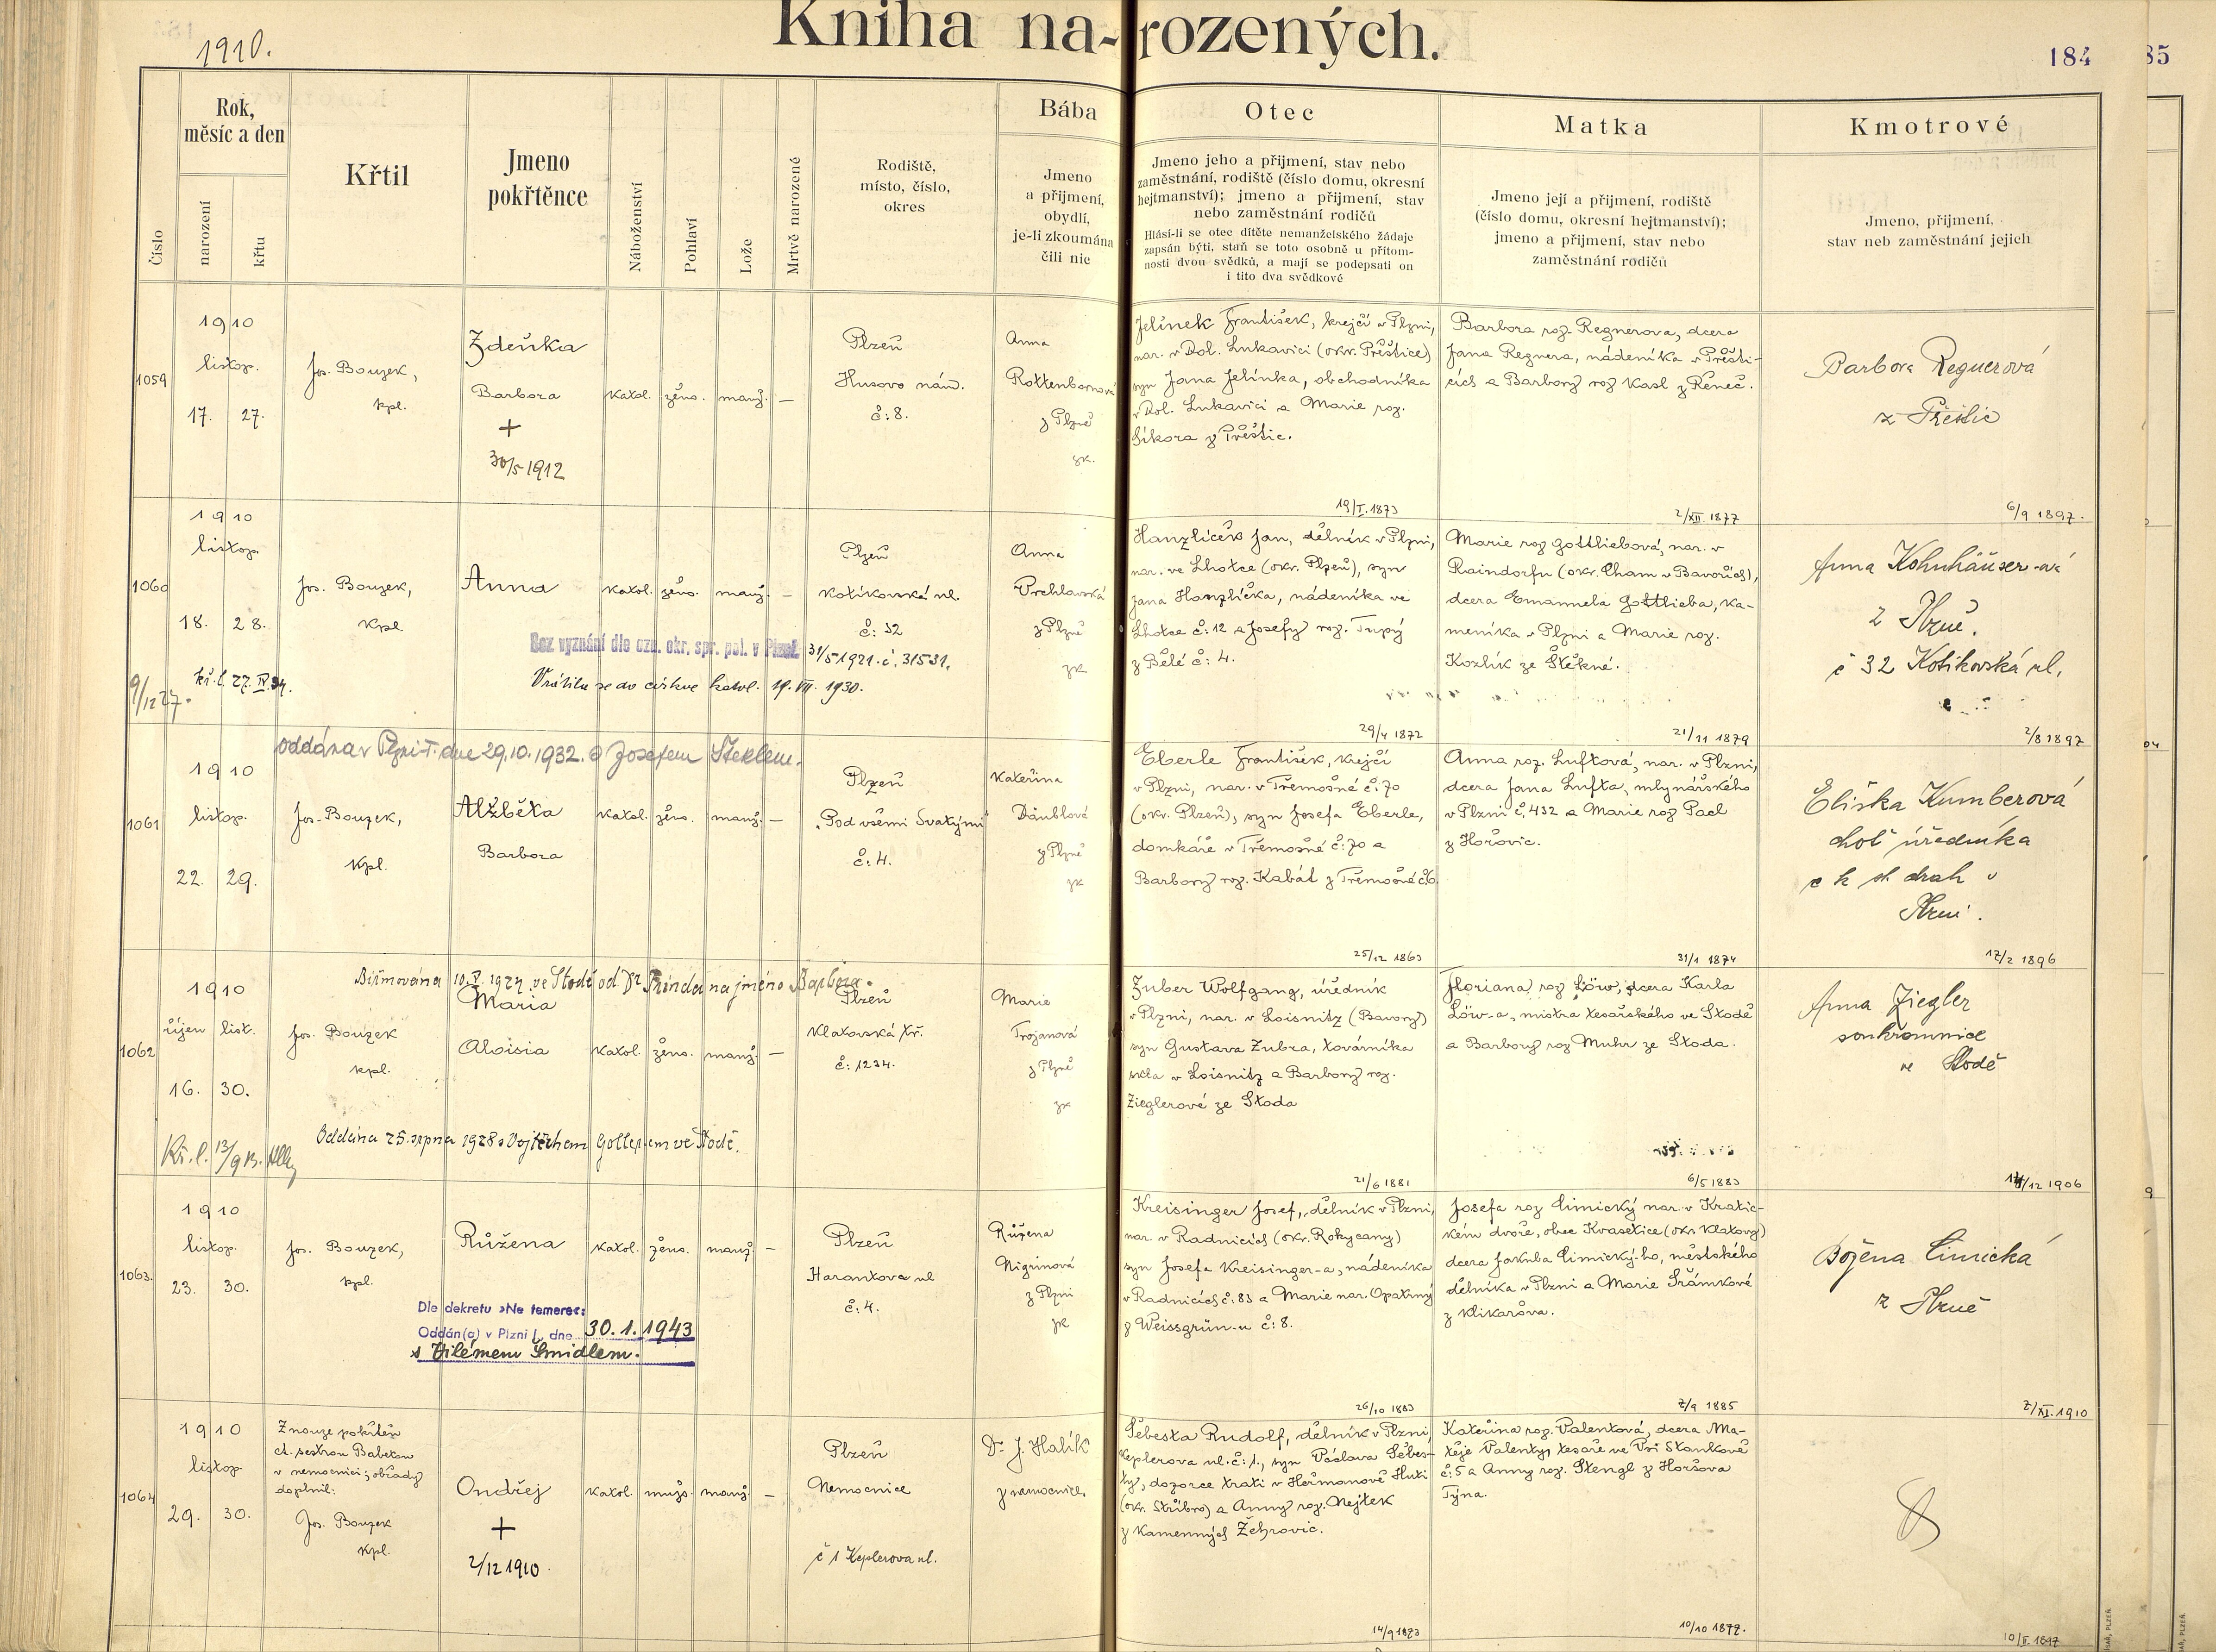 1910.
Kniha na-rozených.
184
85
Číslo
Rok,
měsíc a den
narození
křtu
Křtil
Jmeno
pokřtěnce
Náboženství
Pohlaví
Lože
Mrtvě narozené
Rodiště,
místo, číslo,
okres
Bába
Jmeno
a přijmení,
obydlí,
je-li zkoumána
čili nic
Otec
Jmeno jeho a přijmení, stav nebo
zaměstnání, rodiště (číslo domu, okresní
hejtmanství); jmeno a přijmení, stav
nebo zaměstnání rodičů
Hlásí-li se otec dítěte nemanželského žádaje
zapsán býti, staň se toto osobně u přítom-
nosti dvou svědků, a mají se podepsati on
i tito dva svědkové
Matka
Jmeno její a přijmení, rodiště
(číslo domu, okresní hejtmanství);
jmeno a přijmení, stav nebo
zaměstnání rodičů
Kmotrové
Jmeno, přijmení,
stav neb zaměstnání jejich
1059
1910
listop.
17. 27.
Jos. Bouzek,
kpl.
Zdeňka
Barbora
+
30/5 1912
katol. žens. manž. —
Plzeň
Husovo nám.
č: 8.
Anna
Rottenbornová
z Plzně
zk.
Jelínek František, krejčí v Plzni,
nar. v Dol. Lukavici (okr. Přeštice)
syn Jana Jelínka, obchodníka
v Dol. Lukavici a Marie roz.
Síkora z Přeštic.
19/I. 1873
Barbora roz. Regnerova, dcera
Jana Regnera, nádeníka v Přešti-
cích a Barbory roz Kasl z Řeneč.
2/XII. 1877
Barbora Regnerová
z Přeštic
6/9 1897.
1060
1910
listop.
18. 28.
kř. l. 27. IV. 34.
9/12 27.
Jos. Bouzek,
kpl
Anna
katol. žens. manž. —
Bez vyznání dle ozn. okr. spr. pol. v Plzni 31/5 1921. č. 31531.
Vrátila se do církve katol. 19. VII. 1930.
Plzeň
Kotíkovská ul.
č: 32
Anna
Vrchlavská
z Plzně
zk.
Hanzlíček Jan, dělník v Plzni,
nar. ve Lhotce (okr. Plzeň), syn
Jana Hanzlíčka, nádeníka ve
Lhotce č: 12 a Josefy roz. Tupý
z Bělé č: 4.
29/4 1872
Marie roz Gottliebová, nar. v
Raindorfu (okr. Cham v Bavořích),
dcera Emanuela Gottlieba, ka-
meníka v Plzni a Marie roz.
Kozlík ze Štěkné.
21/11 1879
Anna Kohnhäuser-ová
z Plzně.
č 32 Kotikovská ul.
2/8 1897
oddána v Plzni-I. dne 29.10.1932. s Josefem Steklem.
1061
1910
listop.
22. 29.
Jos. Bouzek,
kpl.
Alžběta
Barbora
katol. žens. manž. —
Plzeň
„Pod všemi Svatými"
č: 4.
Kateřina
Däublová
z Plzně
zk
Eberle František, krejčí
v Plzni, nar. v Třemošné č: 70
(okr. Plzeň), syn Josefa Eberle,
domkáře v Třemošné č: 70 a
Barbory roz. Kabát z Třemošné č: 6.
25/12 1863
Anna roz. Luftová, nar. v Plzni,
dcera Jana Lufta, mlynářského
v Plzni č. 432 a Marie roz Pacl
z Hořovic.
31/1 1874
Eliška Kumberová
choť úředníka
c k st. drah v
Plzni.
17/2 1896
Biřmována 10. V. 1924 ve Stodě od Dr. Hindy na jméno Barbora.
1062
1910
říjen list.
16. 30.
Kř. l. 13/9 13.
Jos. Bouzek
kpl.
Maria
Aloisia
katol. žens. manž. —
Oddána 25. srpna 1928 s Vojtěchem Gollerem ve Stodě.
Plzeň
Klatovská tř.
č: 1234.
Marie
Trojanová
z Plzně
zk
Zuber Wolfgang, úředník
v Plzni, nar. v Loisnitz (Bavory)
syn Gustava Zubra, továrníka
skla v Loisnitz a Barbory roz.
Zieglerové ze Stoda
21/6 1881
Floriana roz Löw, dcera Karla
Löw-a, mistra tesařského ve Stodě
a Barbory roz Muhr ze Stoda.
6/5 1883
Anna Ziegler
soukromnice
ve Stodě
/12 1906
1063.
1910
listop.
23. 30.
Jos. Bouzek,
kpl.
Růžena
katol. žens. manž. —
Dle dekretu »Ne temere«:
Oddán(a) v Plzni I, dne 30. 1. 1943
s Vilémem Šmidlem.
Plzeň
Harantova ul
č: 4.
Růžena
Nigrinová
z Plzni
zk
Kreisinger Josef, dělník v Plzni,
nar. v Radnicích (okr. Rokycany)
syn Josefa Kreisinger-a, nádeníka
v Radnicích č: 83 a Marie nar. Opatrný
z Weissgrün-u č: 8.
26/10 1883
Josefa roz Cimický nar. v Kratic-
kém dvoře, obec Kvasetice (okr. Klatovy)
dcera Jakuba Cimický-ho, městského
dělníka v Plzni a Marie Šrámkové
z Klikařova.
7/9 1885
Božena Cimická
z Plzně
7/XI. 1910
1064
1910
listop
29. 30.
Z nouze pokřtěn
ct. sestrou Babetou
v nemocnici; obřady
doplnil:
Jos. Bouzek
kpl.
Ondřej
+
2/12 1910.
katol. mužs. manž. —
Plzeň
Nemocnice
č 1 Keplerova ul.
Dr. J. Halík
z nemocnice.
Šebesta Rudolf, dělník v Plzni,
Keplerova ul. č: 1., syn Václava Šebes-
ty, dozorce trati v Heřmanově Huti
(okr. Stříbro) a Anny roz. Nejtek
z Kamenných Žehrovic.
14/9 1873
Kateřina roz. Valentová, dcera Ma-
těje Valenty, tesaře ve Vsi Stankově
č: 5 a Anny roz. Stengl z Horšova
Týna.
10/10 1877.
10/II. 1897